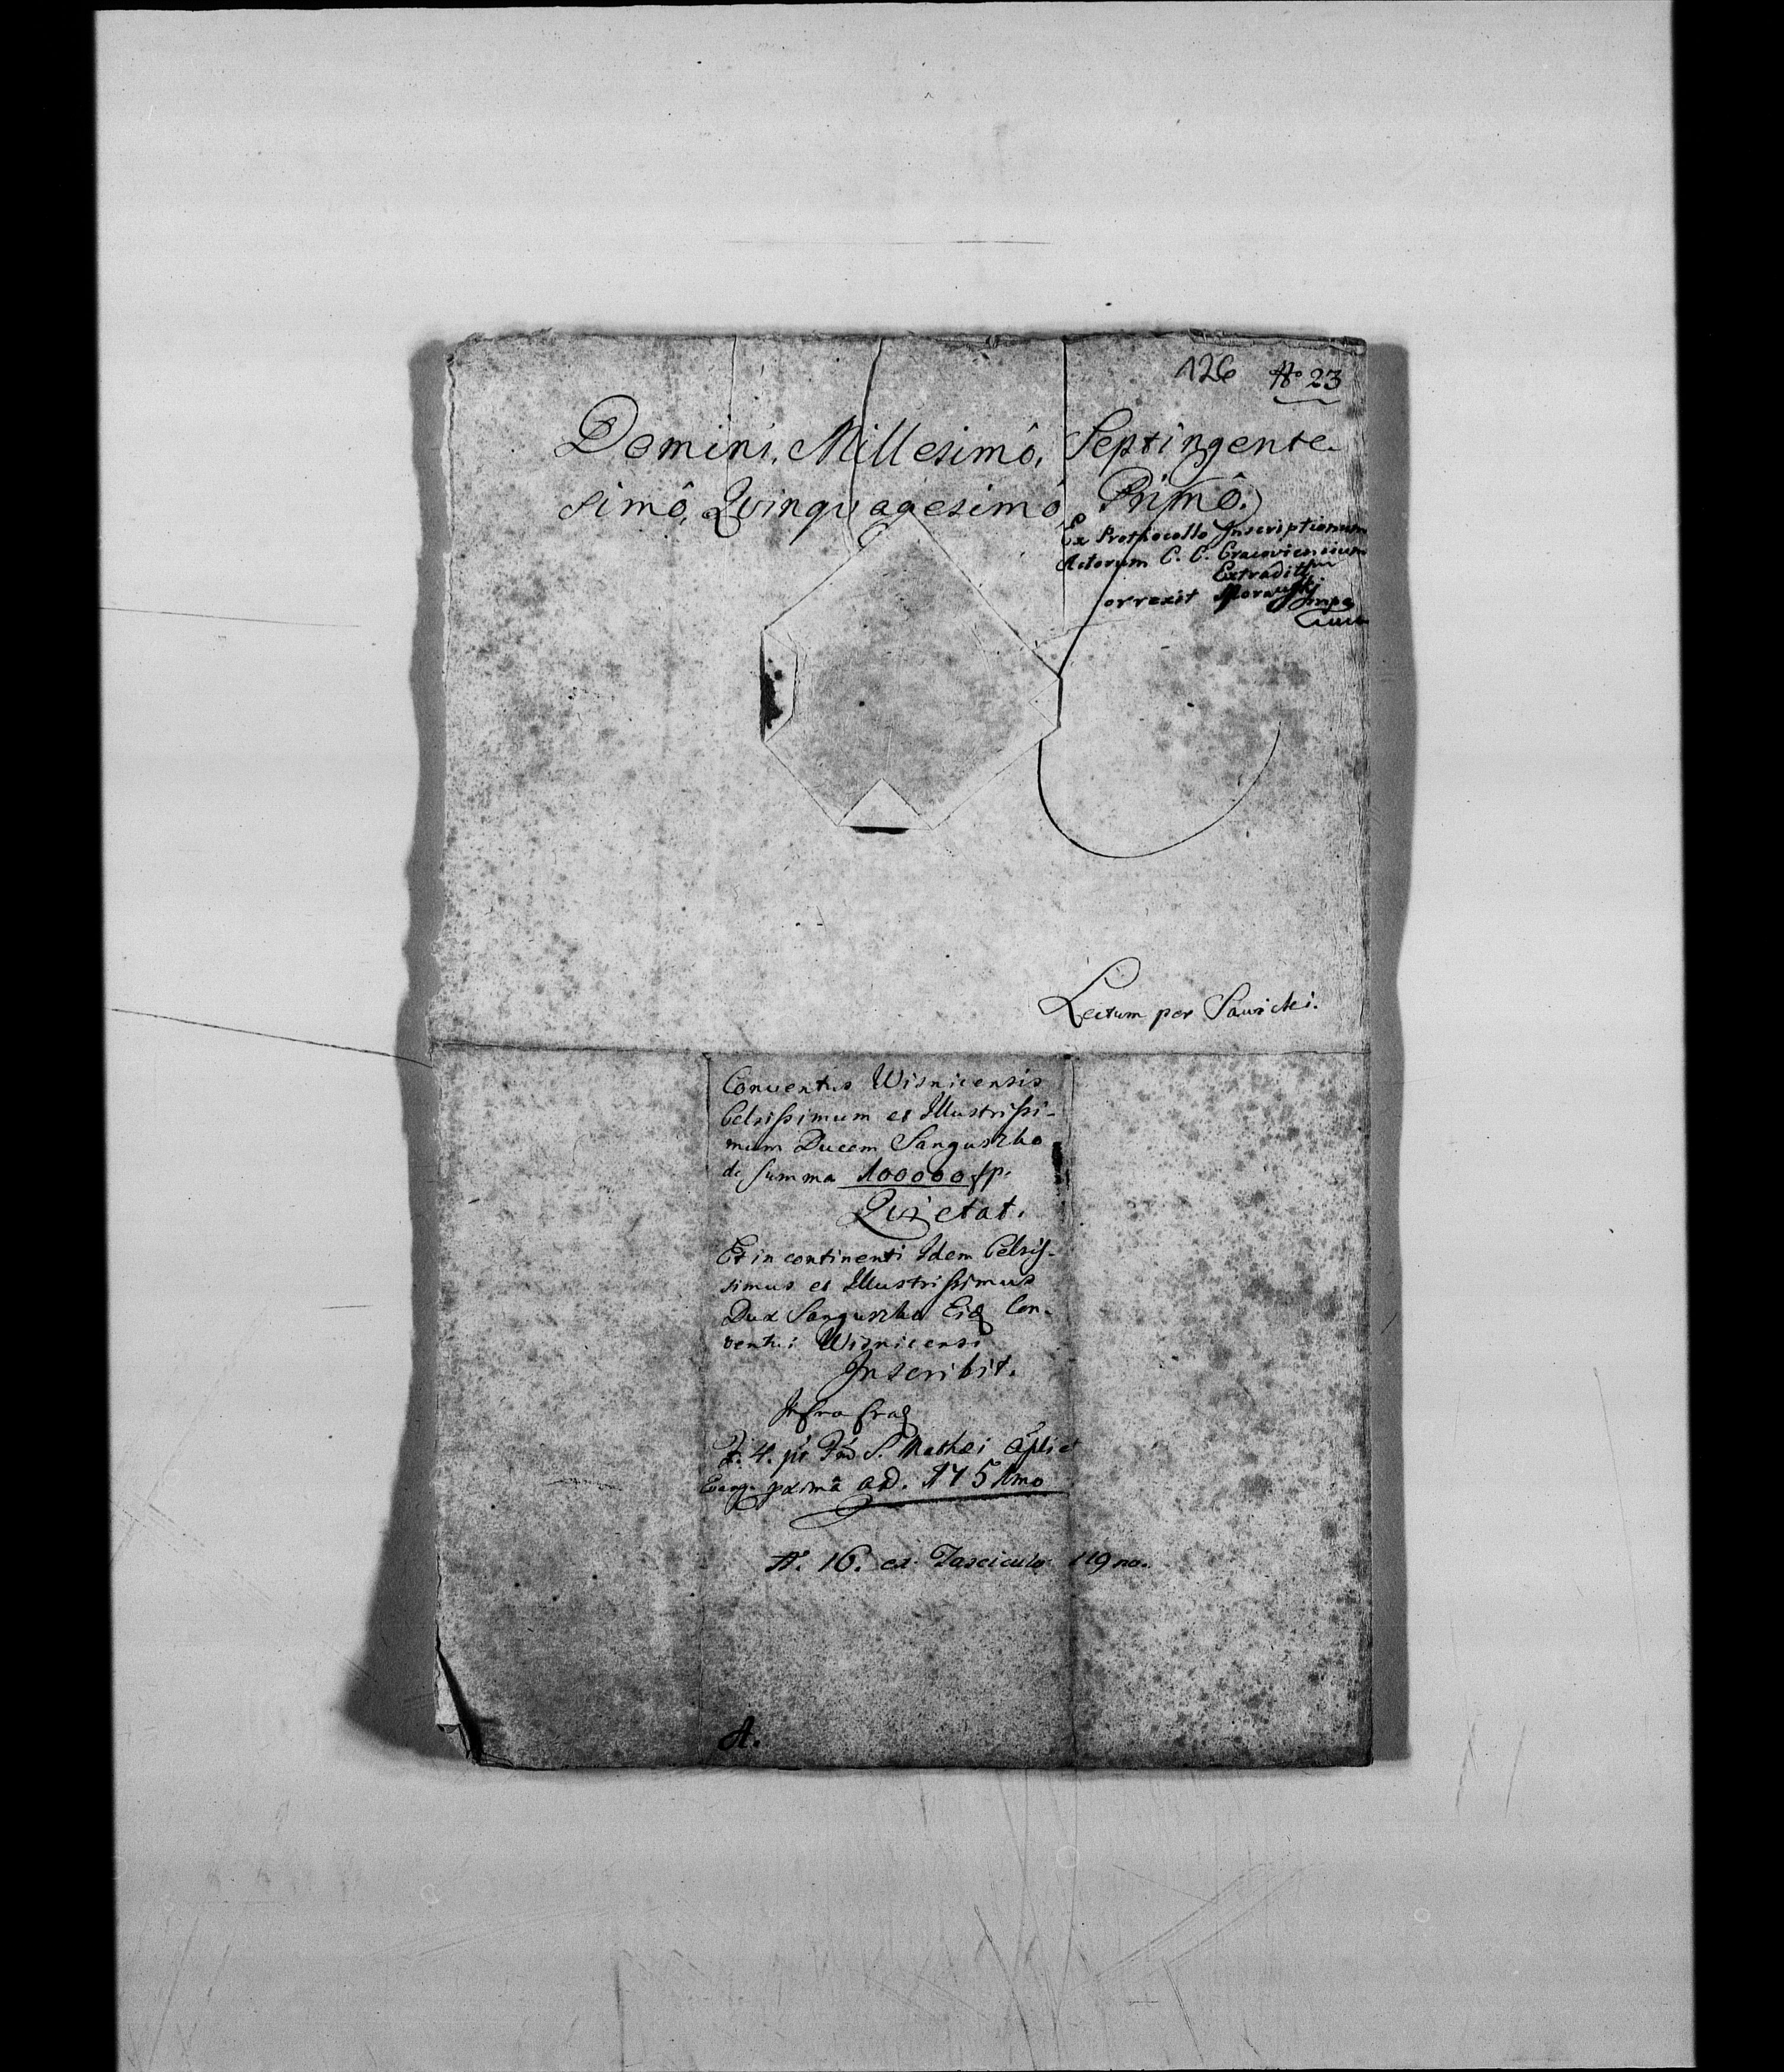 126 No 23
Domini, Millesimô, Septingente-
simô, Qvinqvagesimô, Primô.
Ex Prothocollo Inscriptionum
Actorum C. C. Cracoviensium
Extraditm
Correxit Morawski
mpa
Lectum per Sawicki.
Conventus Wisnicensis
Celsissimum et Illustrissi-
mum Ducem Sanguszko
de Summa 100000 fp.
Quietat.
Et in continenti Idem Celsis-
simus et Illustrissimus
Dux Sanguszko Eidq Con-
ventui Wisnicensi
Inscribit.
F. 4. pt Fād S. Mathei Apli et
Evang. prximā aD. 1751mo
No. 16. ex Fasciculo 119no.
A.